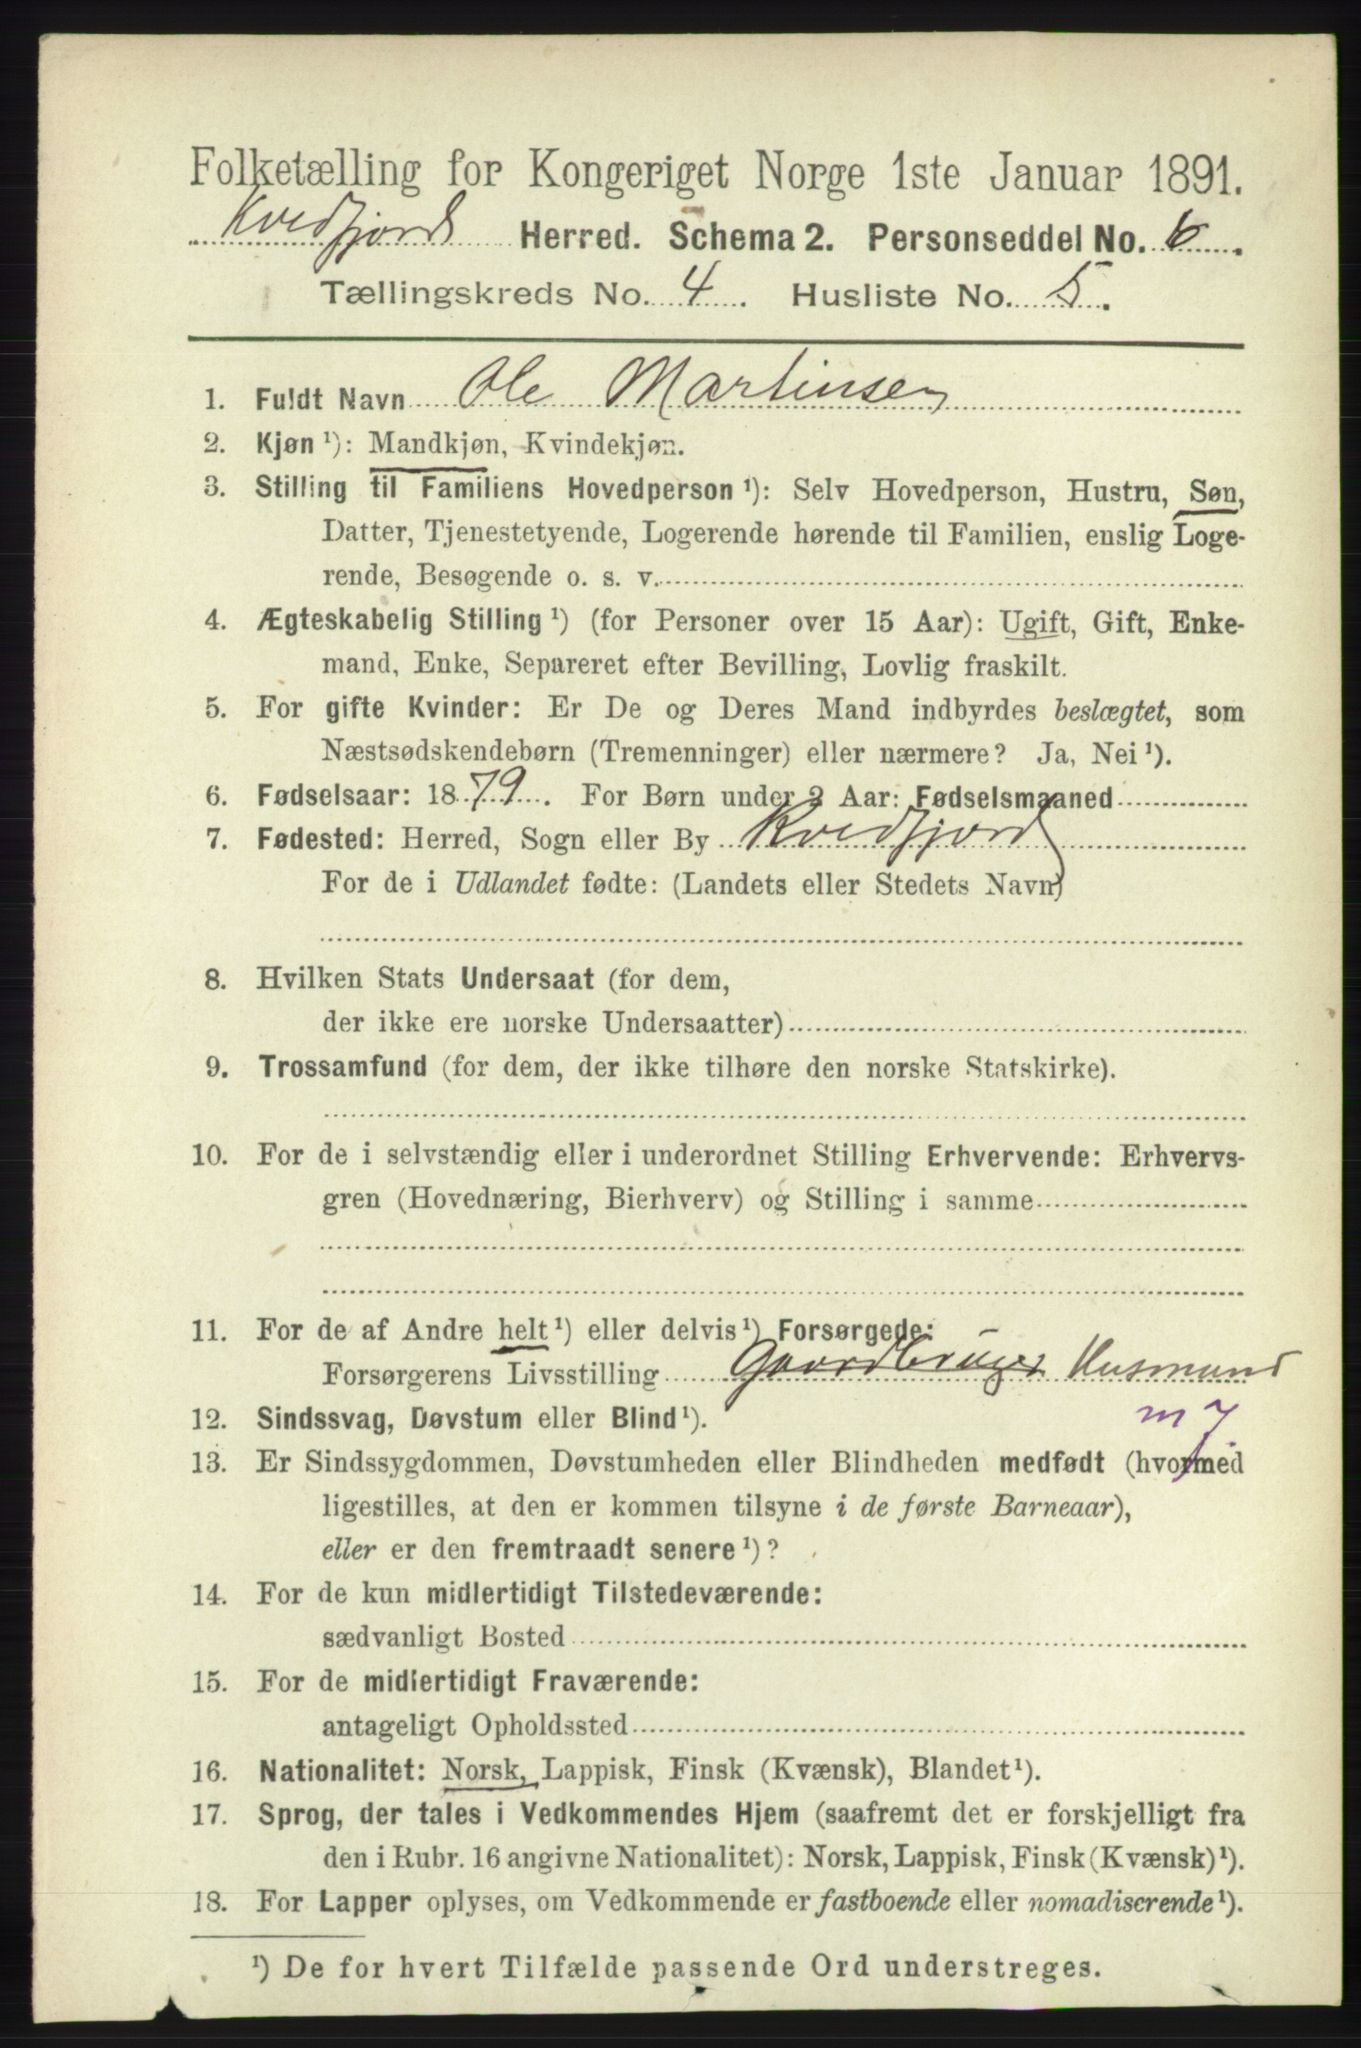 Folketælling for Kongeriget Norge 1ste Januar 1891.
Kvedfjord Herred. Schema 2. Personseddel No. 6.
Tællingskreds No. 4. Husliste No. 5.
1. Fuldt Navn Ole Martinsen
2. Kjøn ¹): Mandkjøn, Kvindekjøn.
3. Stilling til Familiens Hovedperson ¹): Selv Hovedperson, Hustru, Søn,
Datter, Tjenestetyende, Logerende hørende til Familien, enslig Loge-
rende, Besøgende o. s. v.
4. Ægteskabelig Stilling ¹) (for Personer over 15 Aar): Ugift, Gift, Enke-
mand, Enke, Separeret efter Bevilling, Lovlig fraskilt.
5. For gifte Kvinder: Er De og Deres Mand indbyrdes beslægtet, som
Næstsødskendebørn (Tremenninger) eller nærmere? Ja, Nei ¹).
6. Fødselsaar: 1879. For Børn under 2 Aar: Fødselsmaaned
7. Fødested: Herred, Sogn eller By Kvedfjord
For de i Udlandet fødte: (Landets eller Stedets Navn)
8. Hvilken Stats Undersaat (for dem,
der ikke ere norske Undersaatter)
9. Trossamfund (for dem, der ikke tilhøre den norske Statskirke).
10. For de i selvstændig eller i underordnet Stilling Erhvervende: Erhvervs-
gren (Hovednæring, Bierhverv) og Stilling i samme
11. For de af Andre helt ¹) eller delvis ¹) Forsørgede:
Forsørgerens Livsstilling Gaardbruger Husmand
12. Sindssvag, Døvstum eller Blind ¹). m j
13. Er Sindssygdommen, Døvstumheden eller Blindheden medfødt (hvormed
ligestilles, at den er kommen tilsyne i de første Barneaar),
eller er den fremtraadt senere ¹)?
14. For de kun midlertidigt Tilstedeværende:
sædvanligt Bosted
15. For de midlertidigt Fraværende:
antageligt Opholdssted
16. Nationalitet: Norsk, Lappisk, Finsk (Kvænsk), Blandet ¹).
17. Sprog, der tales i Vedkommendes Hjem (saafremt det er forskjelligt fra
den i Rubr. 16 angivne Nationalitet): Norsk, Lappisk, Finsk (Kvænsk) ¹).
18. For Lapper oplyses, om Vedkommende er fastboende eller nomadiserende ¹).
¹) De for hvert Tilfælde passende Ord understreges.